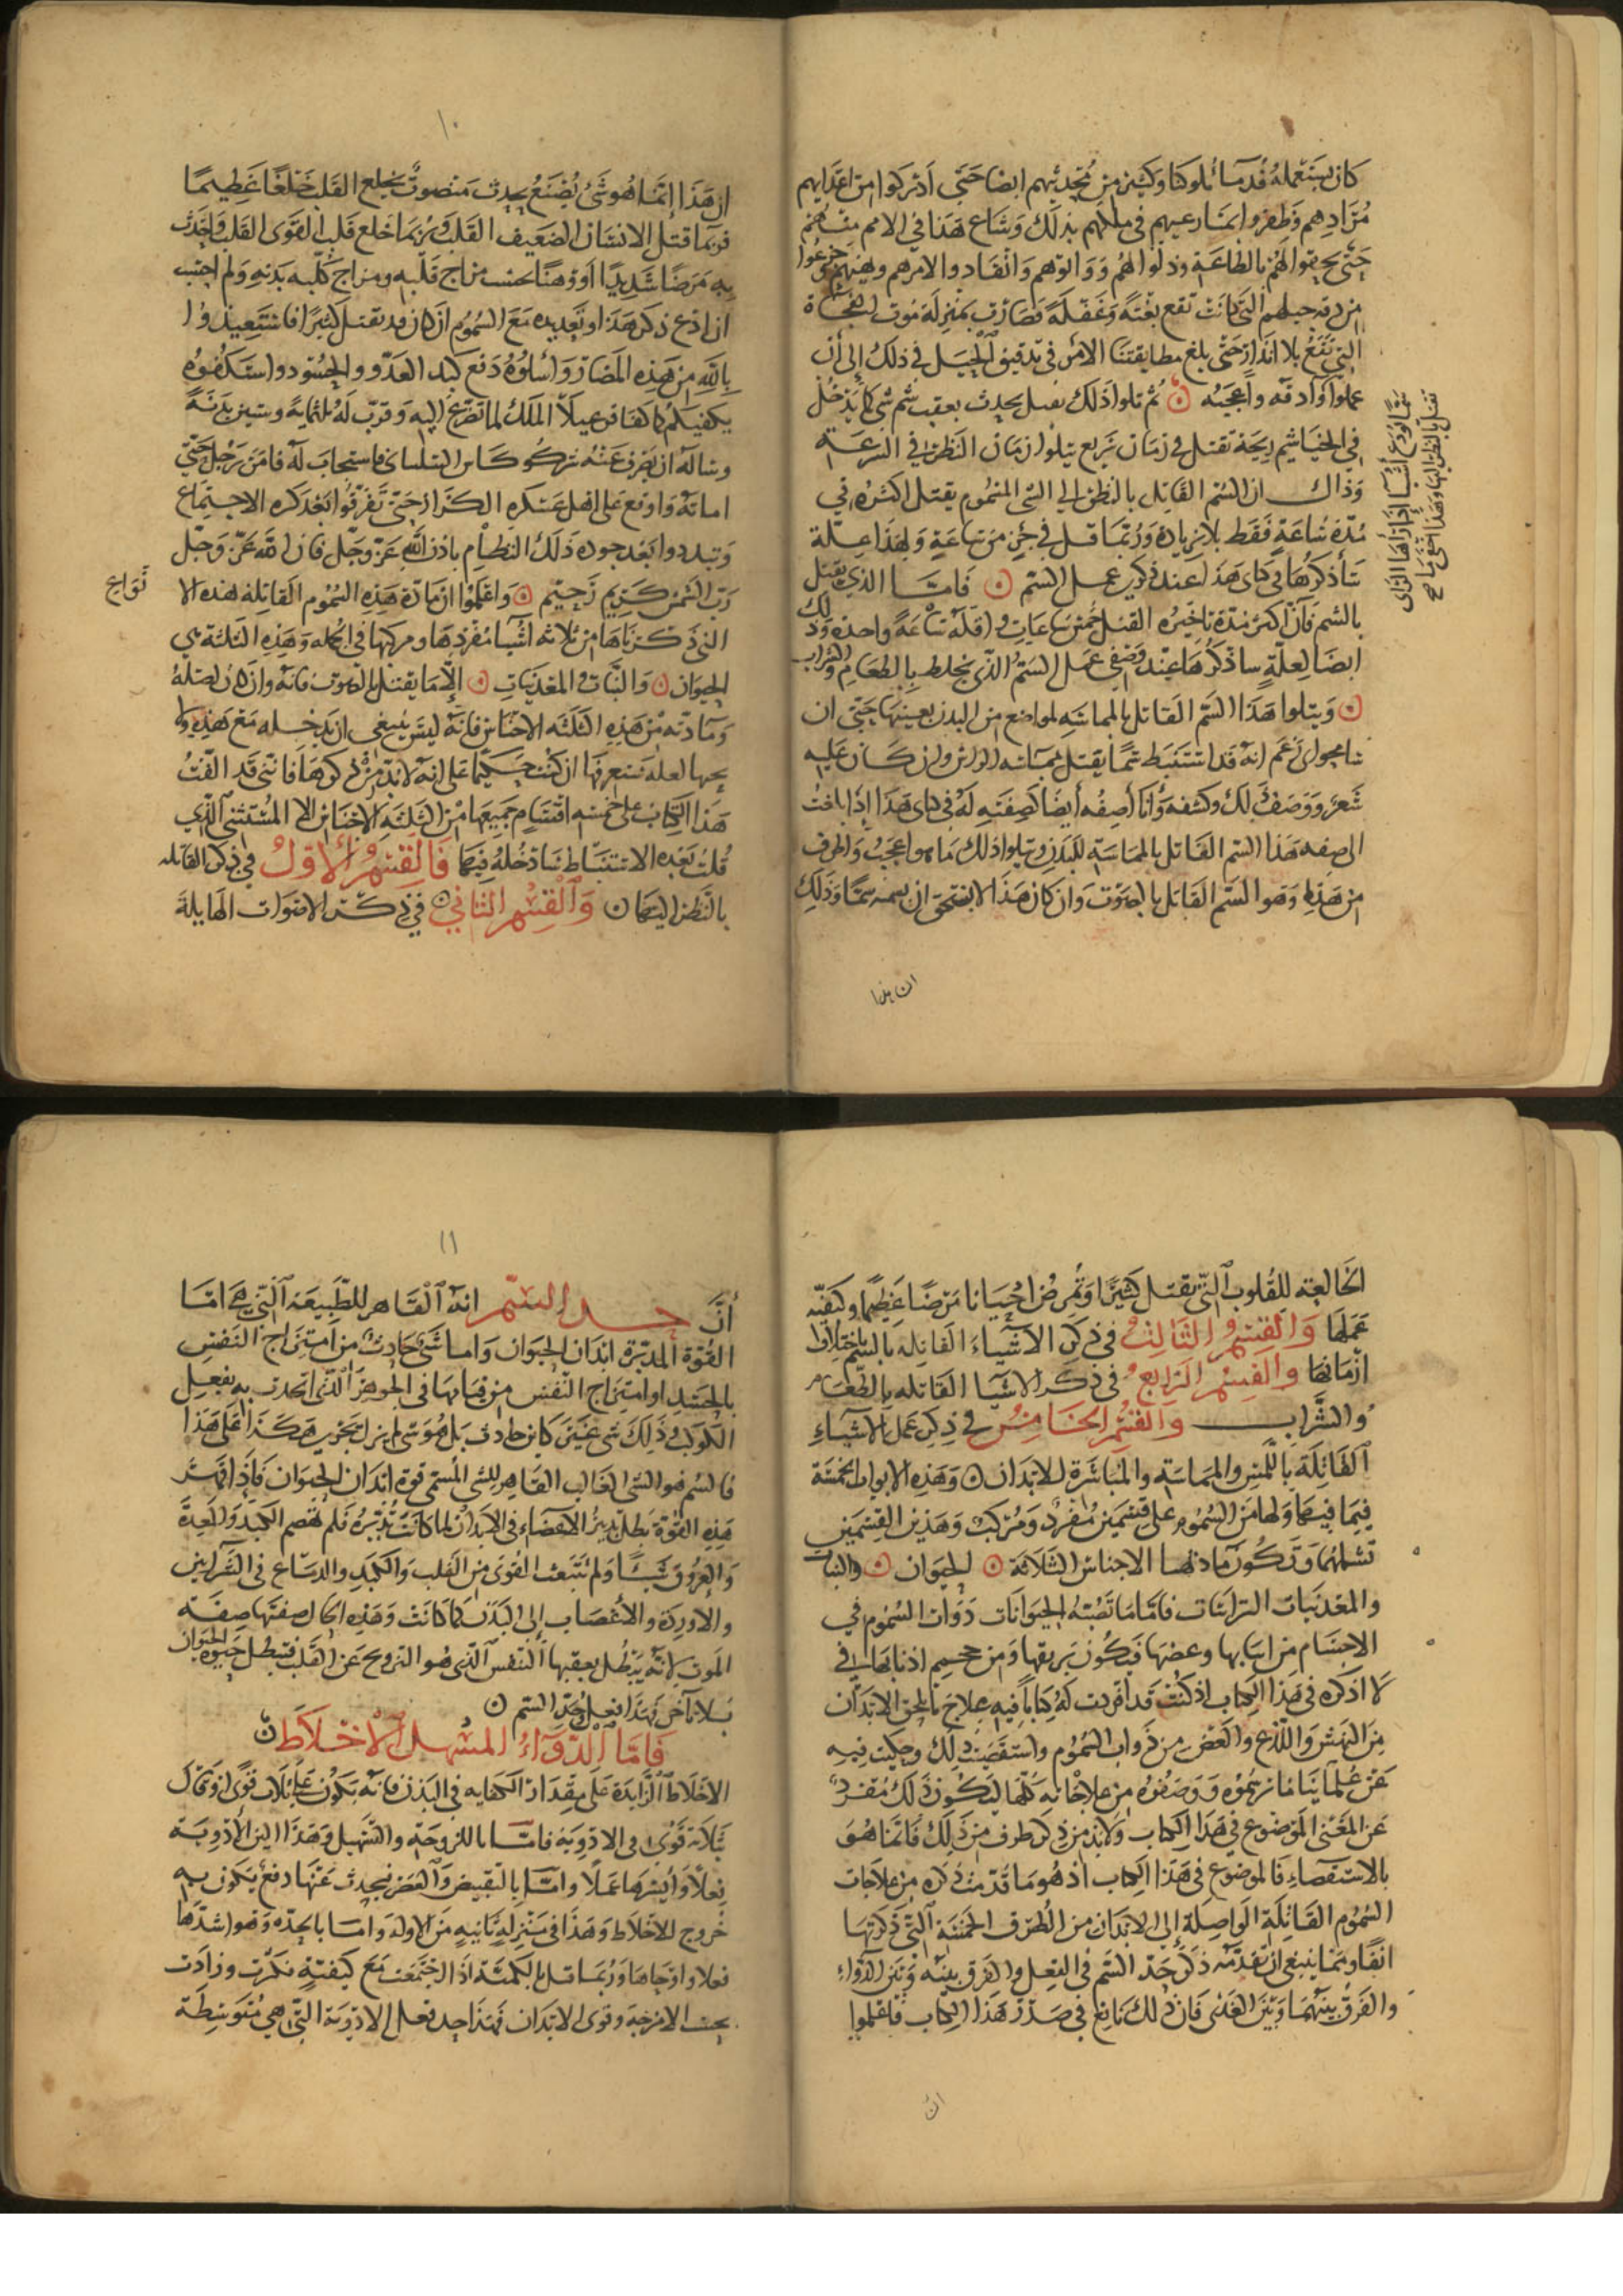 كان يستعمله قدما ملوكنا وكثير من محدثيهم ايضا حتى ادركوا من اعدايهم
مرادهم وظفروا بمنازعيهم في ملكهم بذلك وشاع هذا في الامم منهم
حتى بالطاعة وذلوا لهم وانقادوا لامرهم جزعوا
من دقة حيلهم التي كانت تقع بغتة وغفلة فصارت بمنزلة موت الفجاة
التي تقع بلا انذار حتى بلغ الامر في تدقيق الحيل في ذلك إلى أن
عملوا وادقه واعجبه ثم تلوا ذلك بعقب شم شي كا يدخل
في الخياشيم ريحه تقتل في زمان سريع يتلوا زمان النظر في السرعة
وذاك ان السم القاتل بالنظر الي الشي المسموم يقتل اكثره في
مدة ساعة فقط بلا زيادة وربما قتل في جزء من ساعة ولهذا علة
سأذكرها في كتابي هذا عند ذكري عمل السم فاما الذي يقتل
بالشم فان اكثر مدة تاخيره القتل خمس ساعات واقله ساعة واحدة وذلك
ايضا لعلة ساذكرها عند وصفي عمل السم الذي يخلط بالطعام والشراب
ويتلوا هذا السم القاتل بالمماسة لمواضع من البدن بعينها حتى ان
زعم انه قد استنبط سما يقتل بمماسة الراس وان كان عليه
شعر ووصف لك وكشفه وأنا أصفه أيضا كصفته له في كتابي هذا إذا بلغت
الى صفة هذا السم القاتل بالمماسة للبدن ويتلوا ذلك ما هوا اعجب واطرف
من هذا وهو السم القاتل بالصوت وان كان هذا لا يستحق ان يسمى سما وذلك
ان هذا
تقتل بالنظر اليها وهذا اخفى ما
سما نوع أشيا إذا رآها الرائي
١٠
ان هذا إنما هو شي يصنع يحدث منه صوت يخلع القلب خلعا عظيما
فربما قتل الانسان الضعيف القلب وربما خلع قلب القوى القلب واحدث
به مرضا شديدا او وهنا بحسب مزاج قلبه ومزاج كلية بدنه ولم احب
ان ادع ذكر هذا وتعديده مع السموم اذ كان قد يقتل كثيرا فاستعيذوا
بالله من هذه المضار واسلوه دفع كيد العدو والحسود واستكفوه
يكفيكم كما كفا الملك لما تضرع إليه وقرب له ثلثماية وستين بدنة
وساله ان يصرف عنه فاستجاب له فامر رجل حتى
اماته واوقع على اهل عسكره حتى تفرقوا بعد كره الاجتماع
وتبددوا بعد جودة ذلك النظام باذن الله عز وجل فان الله عز وجل
رب الشمس كريم رحيم واعلموا ان مادة هذه السموم القاتلة هذه الا
نواع
التي ذكرناها من ثلاثه أشيا مفردها ومركبها في الجمله وهذه الثلثة هي
الحيوان والنبات والمعدنيات إلا ما يقتل بالصوت فانه وان كان اصله
ومادته من هذه الثلثه الاجناس فانه ليس ينبغي ان يدخله مع هذه ولا
يجهل لعلة ستعرفها ان كنت حكيما على انه لابد من ذكرها فاني قد الفت
هذا الكتاب على خمسه اقسام جميعها من الثلثة الاجناس الا المستثنى الذي
قلت بعده الاستنباط ساذخله فيها فالقسم الاول في ذكر القاتله
بالنظر اليها والقسم الثاني في ذكر الاصوات الهايلة
الخالعة للقلوب التي تقتل كثيرا وتمرض احيانا مرضا عظيما وكيفية
عملها والقسم الثالث في ذكر الاشياء القاتله بالشم باختلاف
ازمانها والقسم الرابع في ذكر الاشيا القاتله بالطعام
والشراب والقسم الخامس في ذكر عمل الاشياء
القاتلة باللمس والمماسة والمباشرة للابدان وهذه الابواب الخمسة
فيما فيها ولها من السموم على قسمين مفرد ومركب وهذين القسمين
تشملهما وتكون مادتها الاجناس الثلاثة الحيوان والنبات
والمعدنيات الترابيات فاما ما تصبه الحيوانات ذوات السموم في
الاجسام من انيابها وعضها فيكون بريقها ومن اذنابها في
لا اذكره في هذا الكتاب اذ كنت قد افردت له كتابا فيه علاج ما يلحق الابدان
من النهش واللدغ والعض من ذوات السموم واستقصيت ذلك وحكيت فيه
عن علمائنا ما رسموه ووصفوه من علاجاته كلها ليكون ذلك مفرد
عن المعنى الموضوع في هذا الكتاب ولابد من ذكر طرف من ذلك فاما هو
بالاستقصاء فالموضوع في هذا الكتاب اذ هو ما قدمت ذكره من علاجات
السموم القاتلة الواصلة إلى الابدان من الطرق الخمسة التي ذكرتها
انفا ومما ينبغي ان نقدمه ذكر حد السم في الفعل والفرق بينه وبين الدواء
والفرق بينهما وبين الغذي فان ذلك نافع في صدر هذا الكتاب فاعلموا
ان
١١
أن حد السم انه القاهر للطبيعة التي هي اما
القوة المدبرة ابدان الحيوان واما شي حادث من امتزاج النفس
بالجسد او امتزاج النفس من قيامها في الجوهر الذي اتحدت به بفعل
الكواكب وذلك شي غير كاين حادث بل هو شي لم يزل يجري هكذا على هذا
فالسم هو الشي الغالب القاهر للشي المسمى قوة ابدان الحيوان فاذا قهر
هذه القوة بطل تدبير الاعضاء في الابدان لما كانت تدبره فلم تهضم الكبد والمعدة
والعروق شيا ولم تنبعث القوى من القلب والكبد والدماغ في الشرايين
والاوردة والأعصاب إلى البدن كما كانت وهذه الحال صفتها صفة
الموت لانه يبطل بعقبها النفس الذي هو الترويح عن القلب فتبطل حيوة الحيوان
بلا تاخر فهذا فعل وحد السم
فاما الدواء المسهل الاخلاط
الاخلاط الزايدة على مقدار الكفايه في البدن فانه يكون بثلاث قوى اذ وتلك
ثلاثة قوى في الادوية فاما باللزوجة والتسهيل وهذا الين الادوية
فعلا وأيسرها عملا واما بالتقبيض والعصر فيحدث عنها دفع يكون به
خروج الاخلاط وهذا في منزلة ثانية من الاولة واما بالحدة وهو اشدها
فعلا واوحاها وربما قتل بالكمية اذا اجتمعت مع كيفية نكرت وزادت
بحسب الامزجة وقوى الابدان فهذا حد فعل الادوية التي هي متوسطة